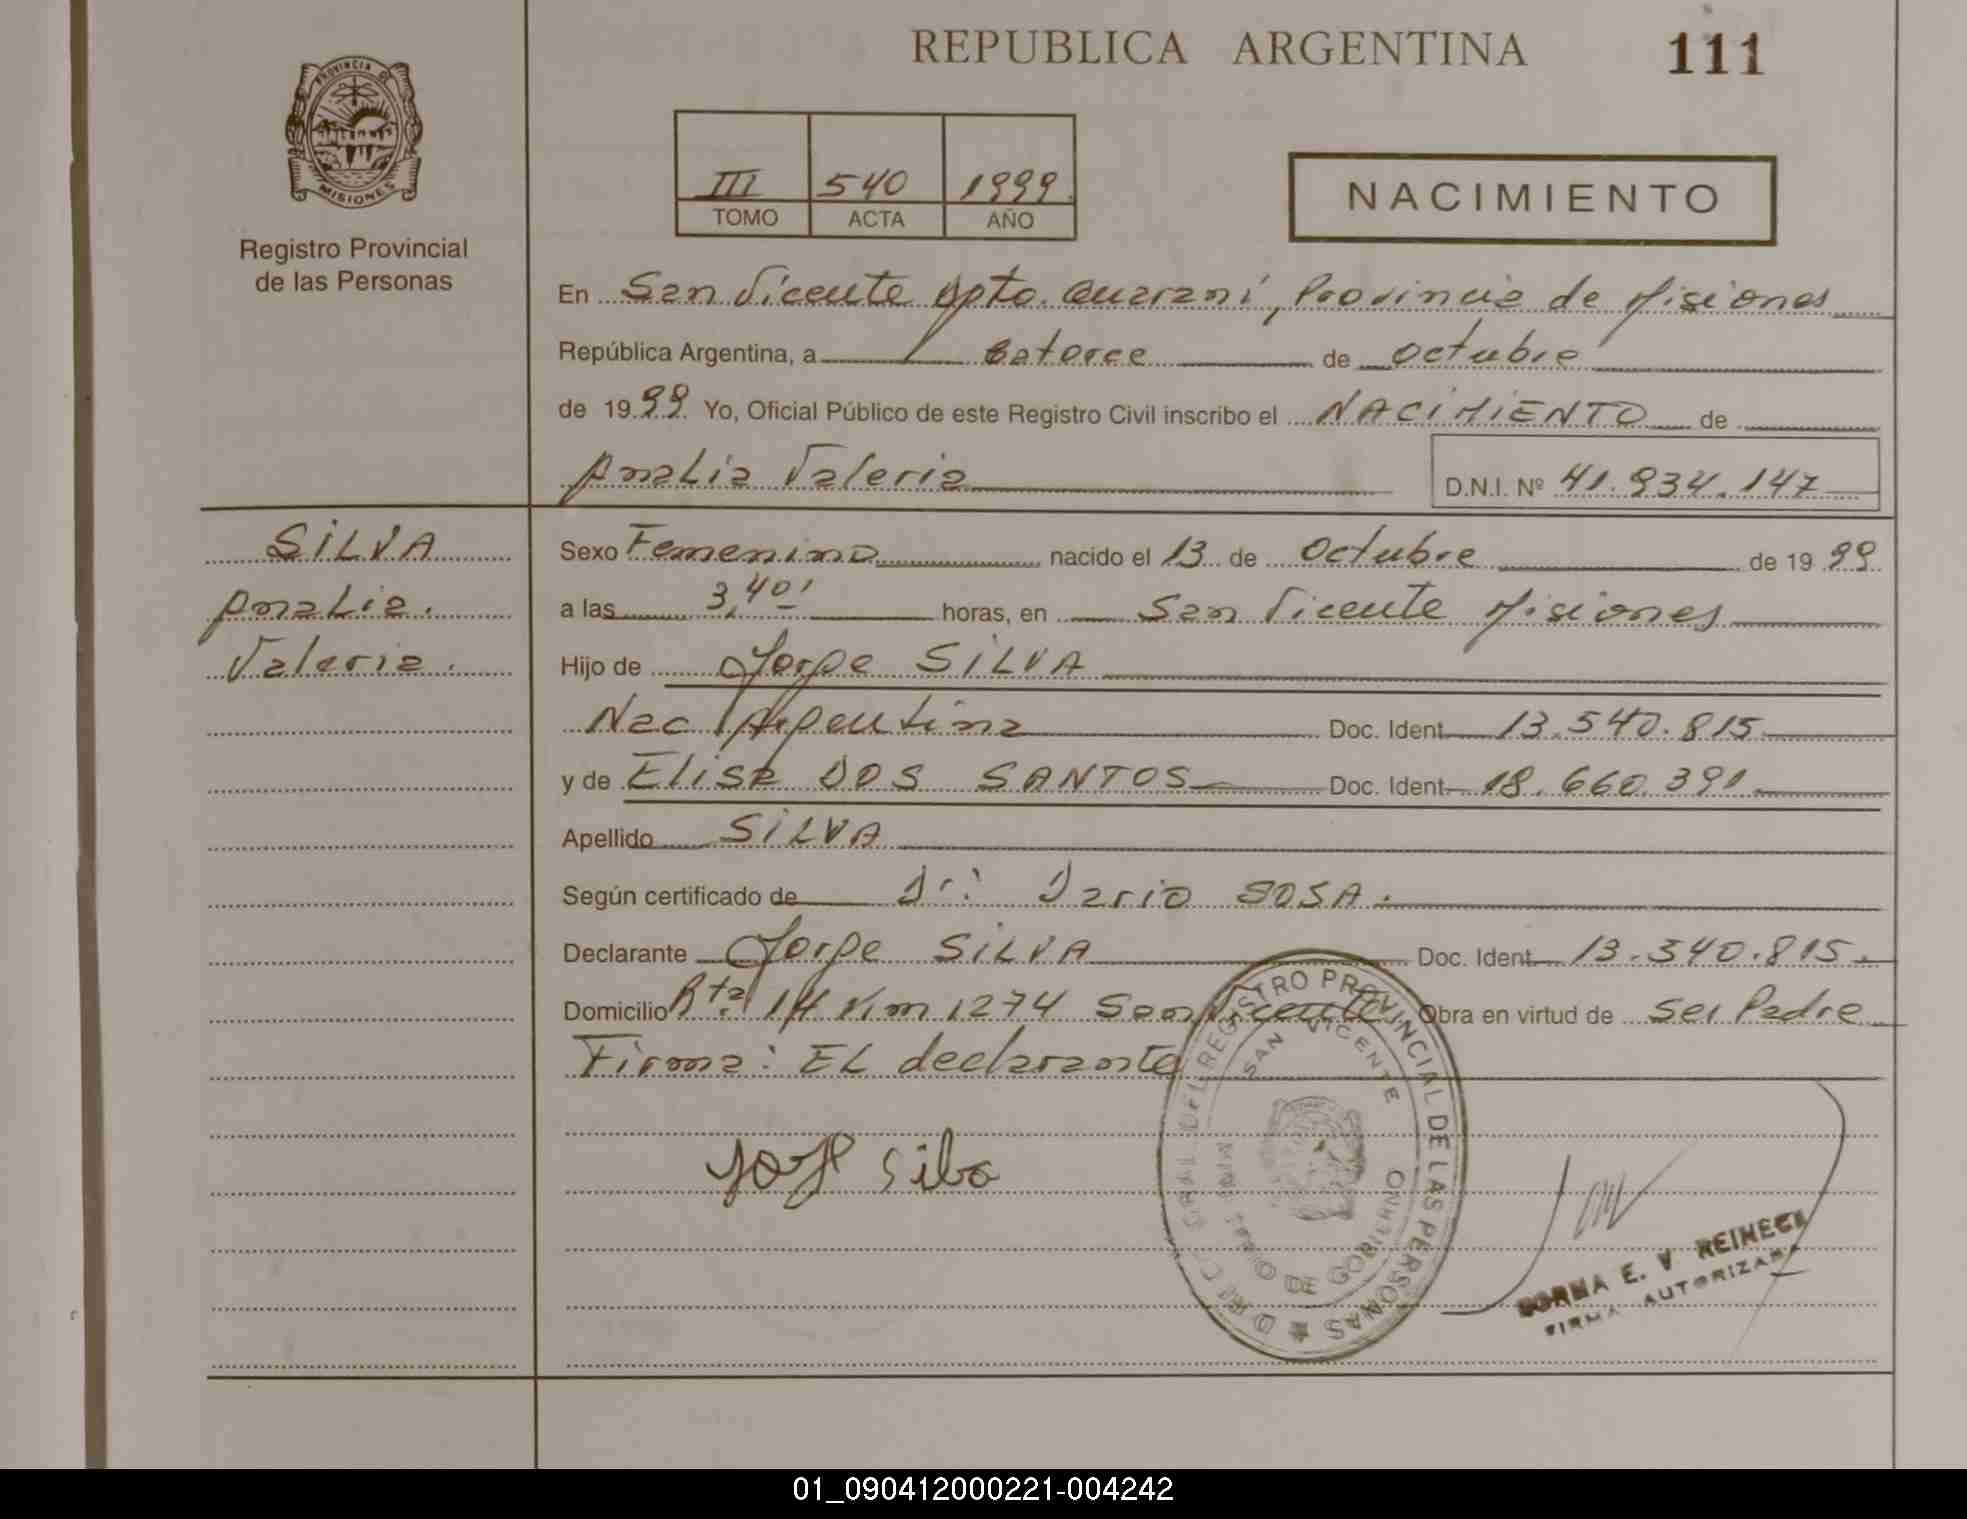 REPUBLICA ARGENTINA
111
PROVINCIA DE
MISIONES
Registro Provincial
de las Personas
III 540 1999
TOMO ACTA AÑO
NACIMIENTO
En San Vicente Dpto. Guaraní, Provincia de Misiones
República Argentina, a catorce de octubre
de 1999 Yo, Oficial Público de este Registro Civil inscribo el NACIMIENTO de
Analia Valeria
D.N.I. Nº 41.934.147
SILVA
Analia.
Valeria.
Sexo Femenino nacido el 13 de octubre de 1999
a las 3,40' horas, en San Vicente Misiones
Hijo de Jorge SILVA
Nac. Argentina Doc. Ident 13.540.815
y de Elisa DOS SANTOS Doc. Ident 18.660.391
Apellido SILVA
Según certificado de Dr: Dario SOSA.
Declarante Jorge SILVA Doc. Ident 13.540.815.
Domicilio Rta. 14 Km 1274 San Vicente Obra en virtud de ser Padre
Firma: EL declarante
REGISTRO PROVINCIAL DE LAS PERSONAS
SAN VICENTE
DE GOBIERNO
E. V. REINECK
FIRMA AUTORIZADA
01_090412000221-004242